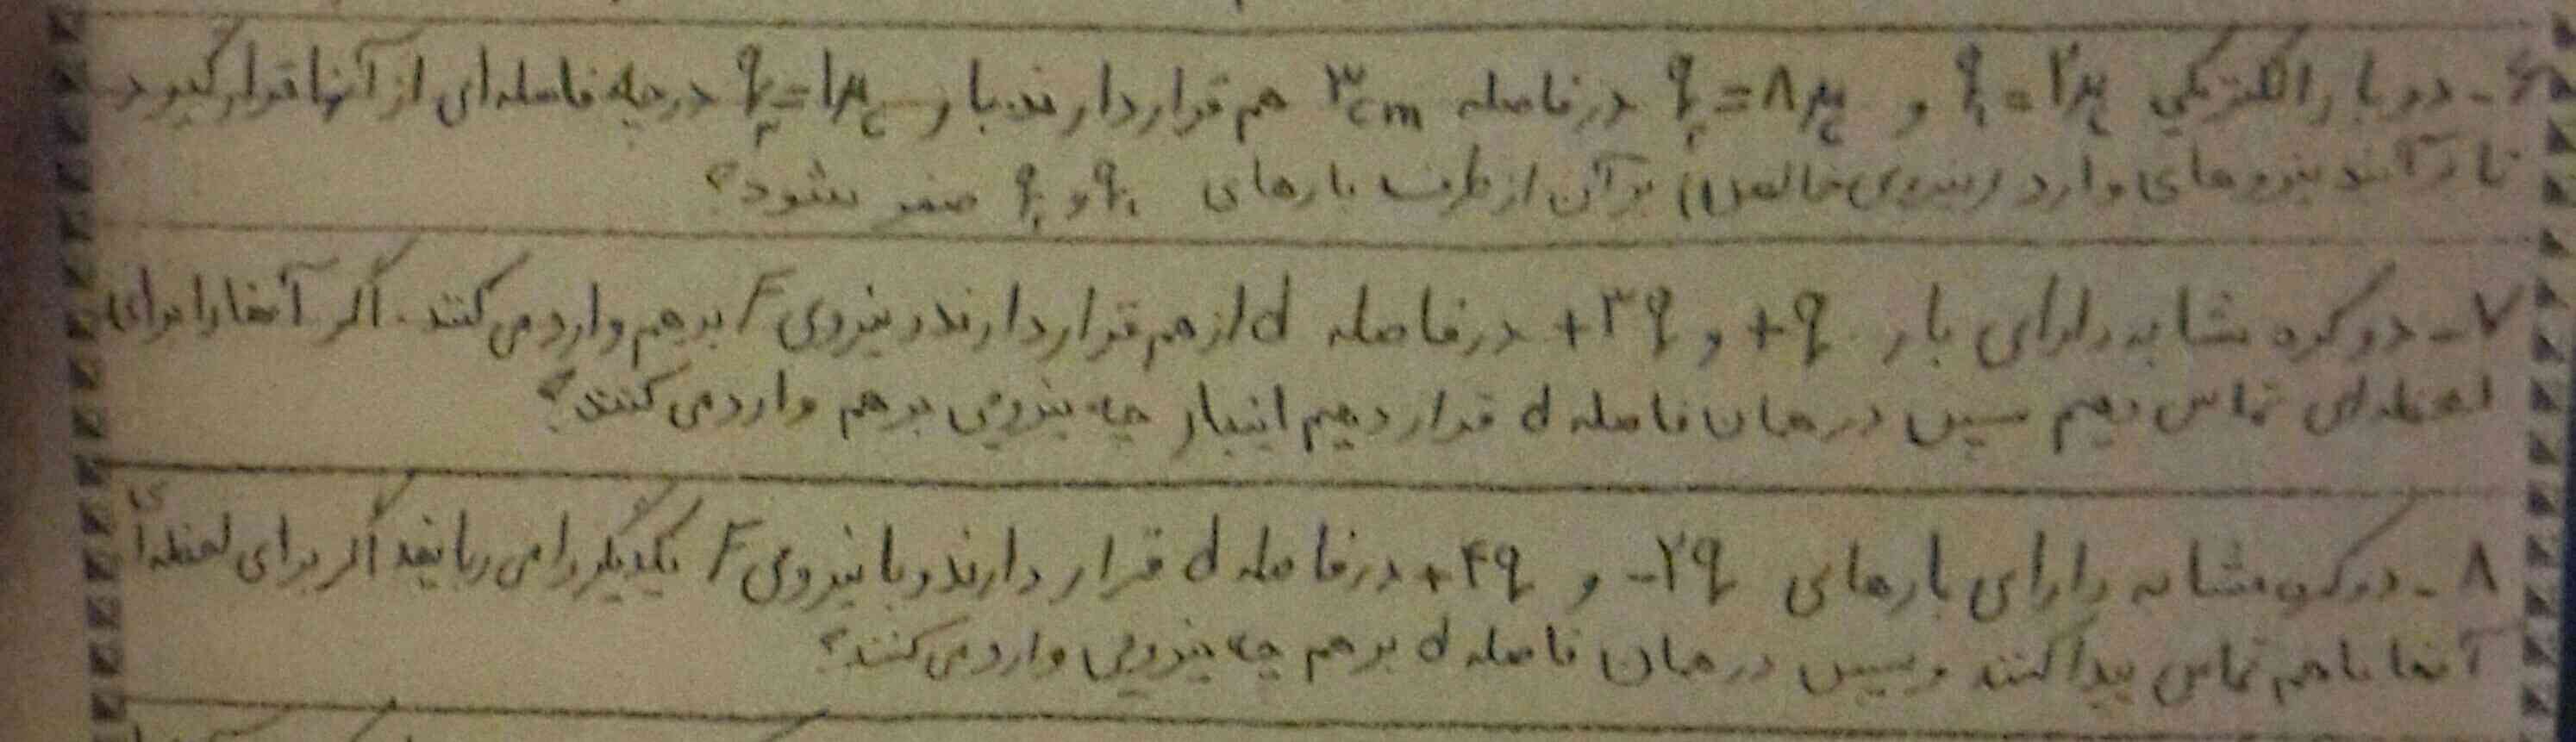 ۶- دو بار الکتریکی q₁ = ۲μc و q₂ = ۸μc در فاصله ۳cm هم قرار دارند بار q₃ = ۱μc در چه فاصله ای از آنها قرار گیرد
تا برآیند نیروهای وارد (نیروی خالص) بر آن از طرف بارهای q₁ و q₂ صفر شود؟
۷- دو کره مشابه دارای بار +q و +۳q در فاصله d از هم قرار دارند و نیروی F بر هم وارد می کنند. اگر آنها را برای
لحظه ای تماس دهیم سپس در همان فاصله d قرار دهیم اینبار چه نیرویی بر هم وارد می کنند؟
۸- دو کره مشابه دارای بارهای -۲q و +۴q در فاصله d قرار دارند و با نیروی F یکدیگر را می ربایند اگر برای لحظه ای
آنها با هم تماس پیدا کنند و سپس در همان فاصله d بر هم چه نیرویی وارد می کنند؟